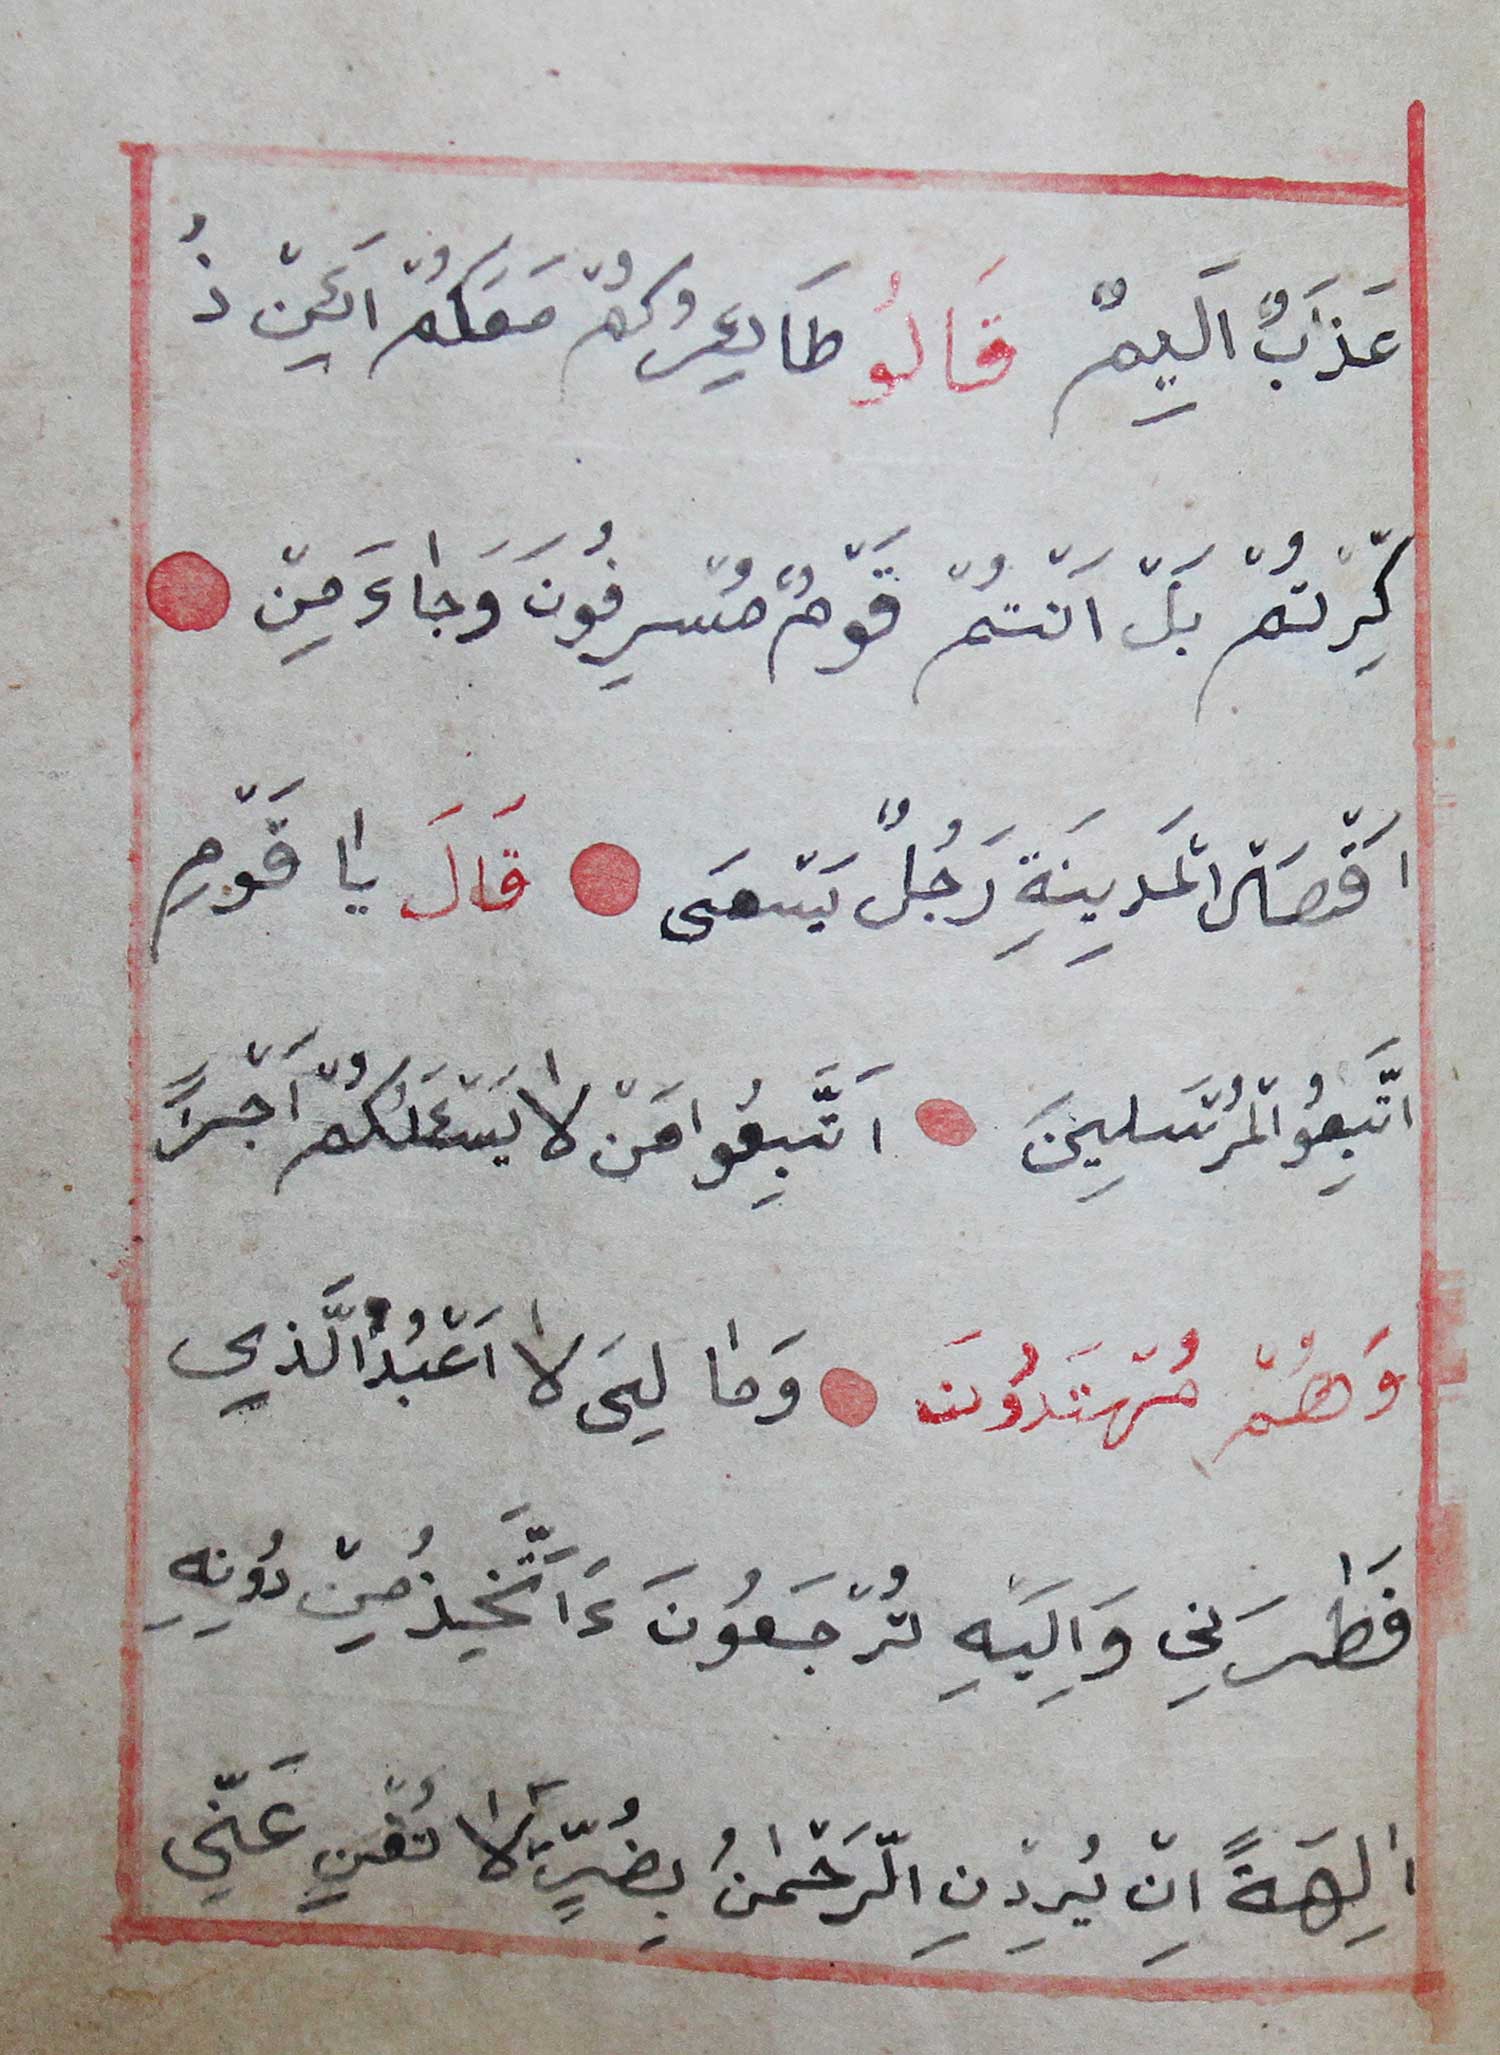 عَذَبٌ اَلَيِمٌ قَالُو طَايِٕرُكُمْ مَعَكُمْ اَئِنْ ذُ
كِّرْتُمْ بَلْ اَنْتُمْ قَوْمٌ مُسْرِفُونَ وَجٰاءَ مِنْ
اَقْصَا الْمَدِينَةِ رَجُلٌ يَسْعَى قَالَ يٰا قَوْمِ
اتَّبِعُوالْمُرْسَلِينَ اَتَّبِعُوا مَنْ لاٰ يَسْئَلَكُمْ اَجْرًا
وَهُمْ مُهْتَدُونَ وَمٰا لِىَ لاٰ اَعْبُدُ الَّذِي
فَطَرَنِى وَاِلَيْهِ تُرْجَعُونَ ءَاَتَّخِذُ مِنْ دُونِهِ
اٰلِهَةً اِنْ يُرِدْنِ الرَّحْمٰنُ بِضُرٍّ لاٰ تُغْنِ عَنّي